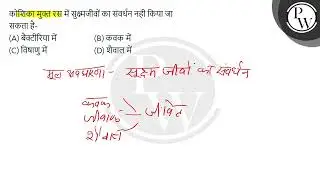 कोशिका मुक्त रस में सूक्ष्मजीवों का संवर्धन नहीं किया जा
सकता है-
(A) बैक्टीरिया में (B) कवक में
(C) विषाणु में (D) शैवाल में
मूल अवधारणा- सूक्ष्म जीवों का संवर्धन
कवक
जीवाणु जीवित
शैवाल